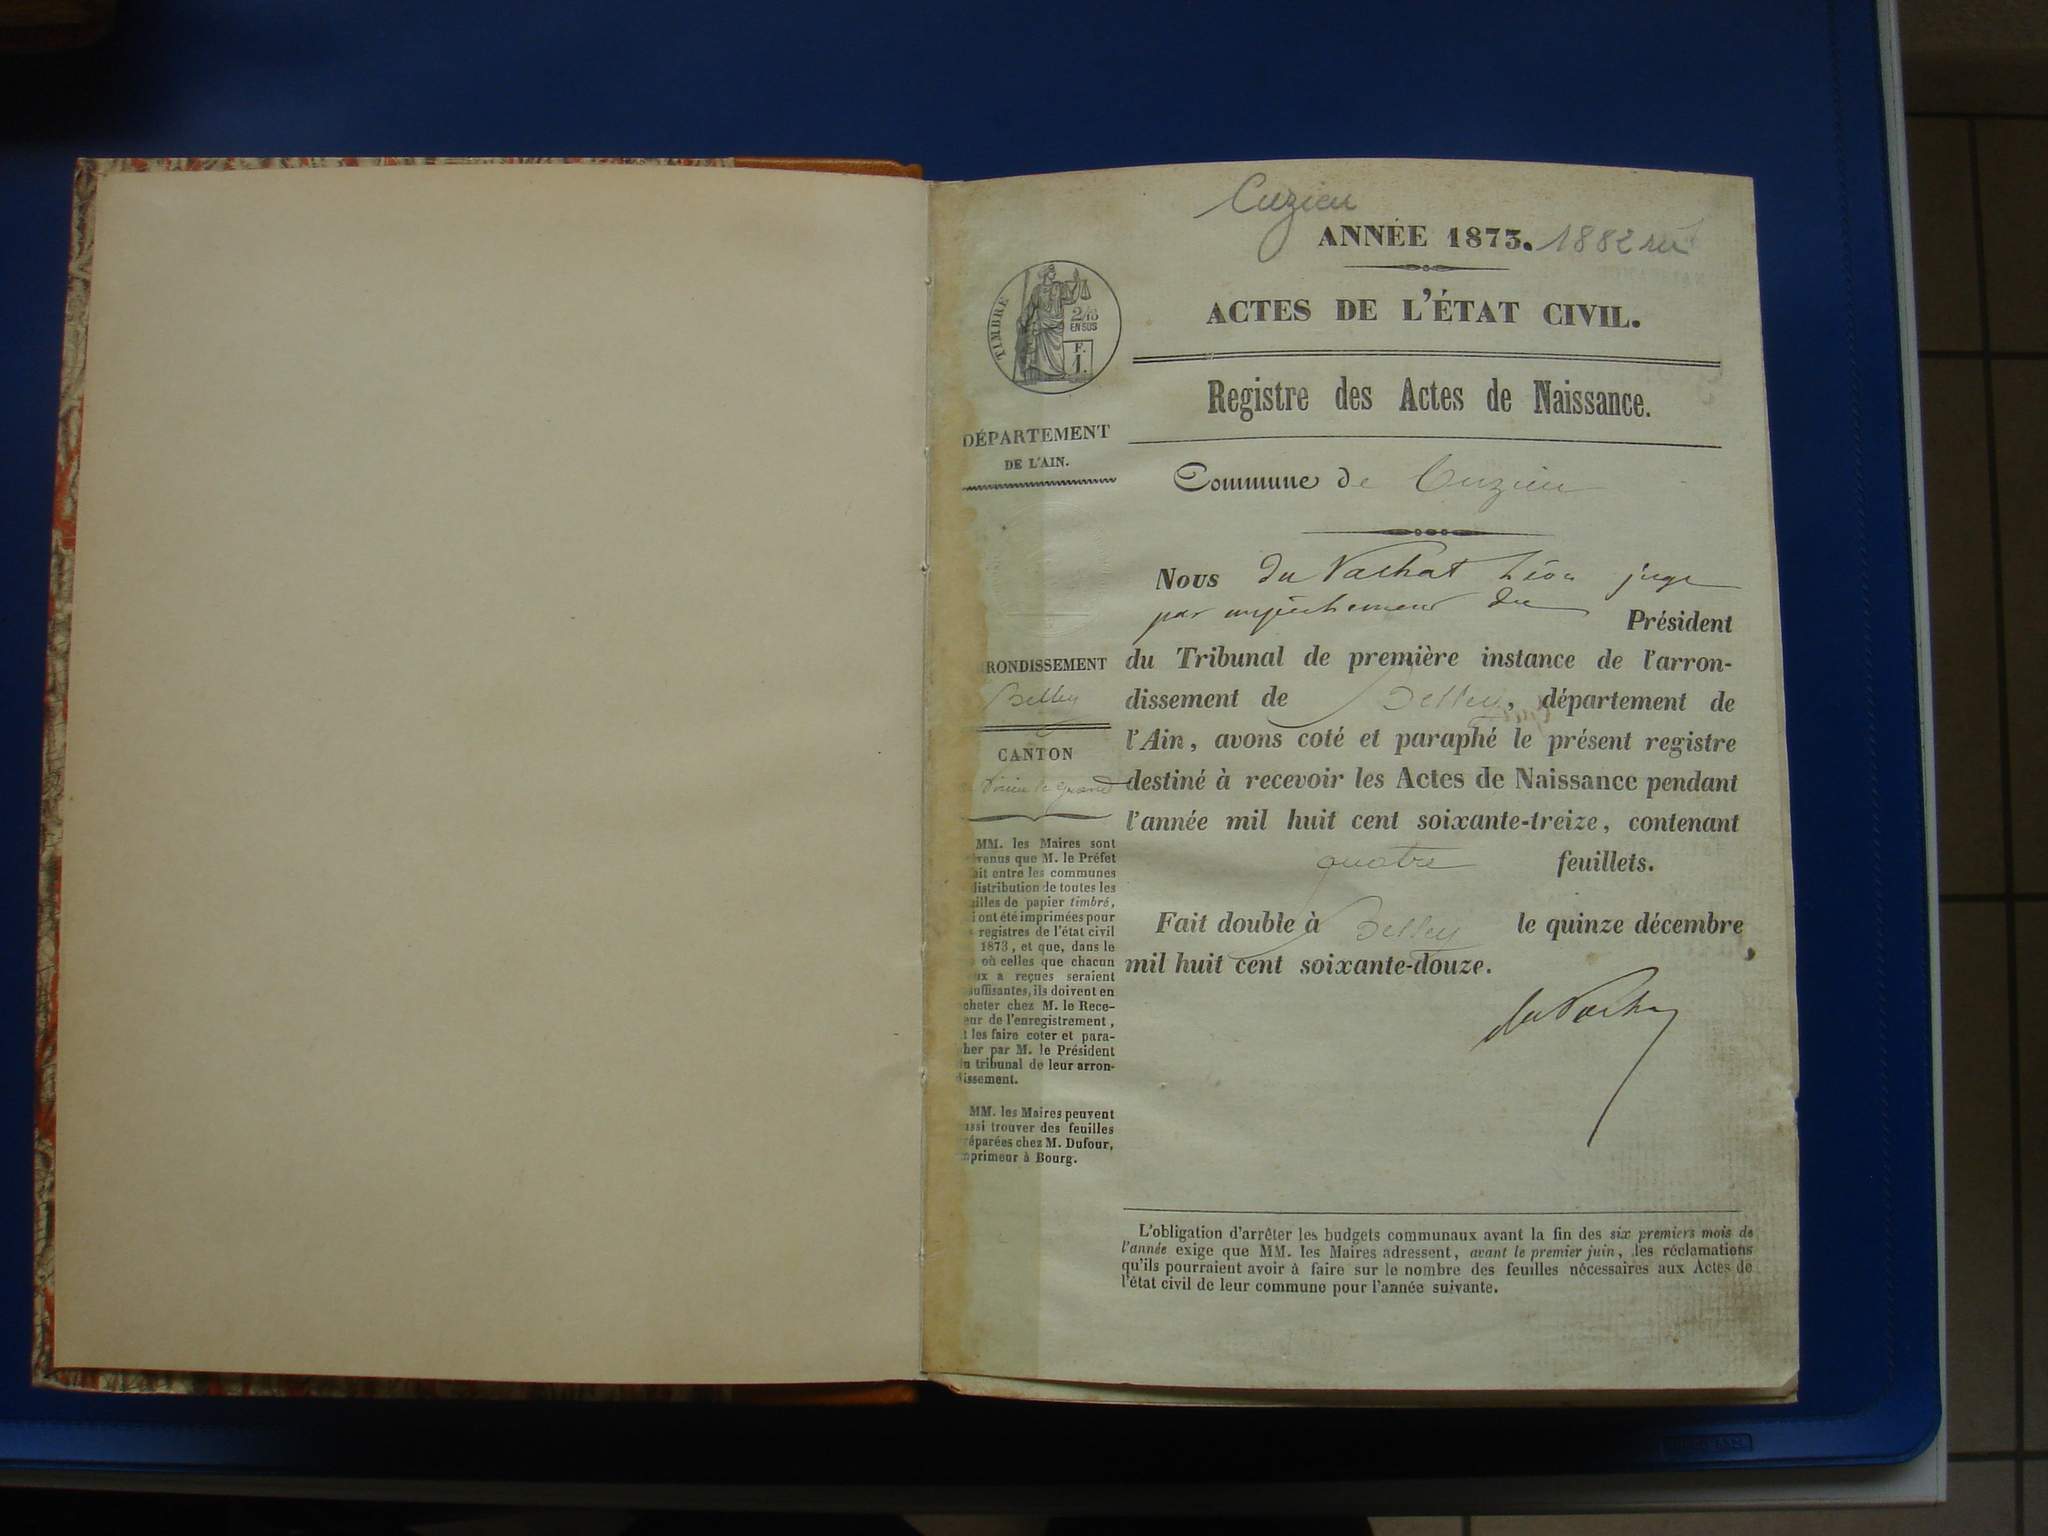 Cuzieu
ANNÉE 1873. 1882
ACTES DE L'ÉTAT CIVIL.
Registre des Actes de Naissance.
Commune de Cuzieu
Nous du Vachat Léon juge
par empêchement du Président
du Tribunal de première instance de l'arron-
dissement de Belley, département de
l'Ain, avons coté et paraphé le présent registre
destiné à recevoir les Actes de Naissance pendant
l'année mil huit cent soixante-treize, contenant
quatre feuillets.
Fait double à Belley le quinze décembre
mil huit cent soixante-douze.
du Vachat
L'obligation d'arrêter les budgets communaux avant la fin des six premiers mois de
l'année exige que MM. les Maires adressent, avant le premier juin, les réclamations
qu'ils pourraient avoir à faire sur le nombre des feuilles nécessaires aux Actes de
l'état civil de leur commune pour l'année suivante.
TIMBRE
2/10
EN SUS
F.
1.
DÉPARTEMENT
DE L'AIN.
RONDISSEMENT
Belley
CANTON
Virieu le grand
MM. les Maires sont
venus que M. le Préfet
ait entre les communes
distribution de toutes les
illes de papier timbré,
i ont été imprimées pour
s registres de l'état civil
1873, et que, dans le
où celles que chacun
ux a reçues seraient
suffisantes, ils doivent en
cheter chez M. le Rece-
eur de l'enregistrement,
t les faire coter et para-
her par M. le Président
u tribunal de leur arron-
dissement.
MM. les Maires peuvent
ussi trouver des feuilles
réparées chez M. Dufour,
mprimeur à Bourg.